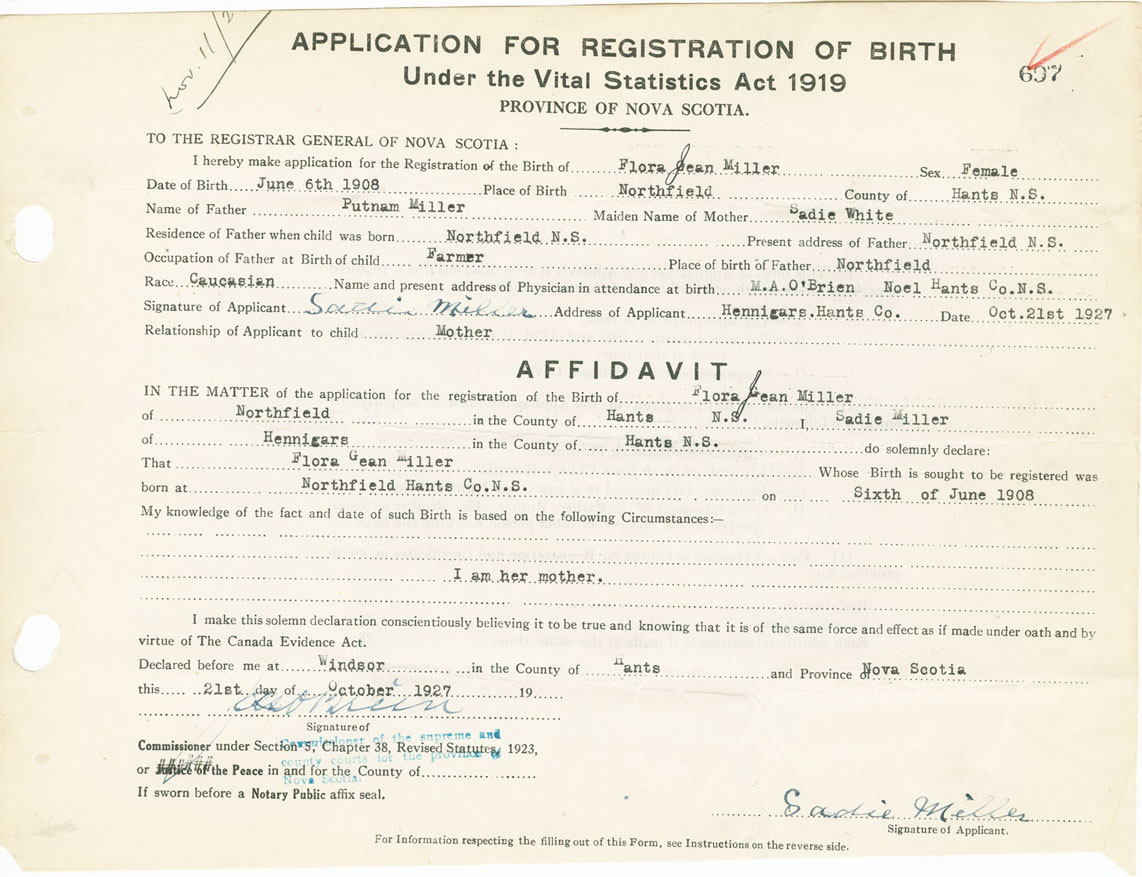 Nov. 11/2
APPLICATION FOR REGISTRATION OF BIRTH
697
Under the Vital Statistics Act 1919
PROVINCE OF NOVA SCOTIA.
TO THE REGISTRAR GENERAL OF NOVA SCOTIA :
I hereby make application for the Registration of the Birth of Flora Jean Miller Sex Female
Date of Birth June 6th 1908 Place of Birth Northfield County of Hants N.S.
Name of Father Putnam Miller Maiden Name of Mother Sadie White
Residence of Father when child was born Northfield N.S. Present address of Father Northfield N.S.
Occupation of Father at Birth of child Farmer Place of birth of Father Northfield
Race Caucasian Name and present address of Physician in attendance at birth M.A.O'Brien Noel Hants Co.N.S.
Signature of Applicant Sadie Miller Address of Applicant Hennigars.Hants Co. Date Oct.21st 1927
Relationship of Applicant to child Mother
AFFIDAVIT
IN THE MATTER of the application for the registration of the Birth of Flora Jean Miller
of Northfield in the County of Hants N.S. I, Sadie Miller
of Hennigars in the County of Hants N.S. do solemnly declare:
That Flora Gean Miller Whose Birth is sought to be registered was
born at Northfield Hants Co.N.S. on Sixth of June 1908
My knowledge of the fact and date of such Birth is based on the following Circumstances:—
I am her mother.
I make this solemn declaration conscientiously believing it to be true and knowing that it is of the same force and effect as if made under oath and by
virtue of The Canada Evidence Act.
Declared before me at Windsor in the County of Hants and Province of Nova Scotia
this 21st day of October 1927 19
Signature of
Commissioner of the supreme and
Commissioner under Section 5, Chapter 38, Revised Statutes, 1923,
county courts for the province of
or Justice of the Peace in and for the County of
Nova Scotia.
If sworn before a Notary Public affix seal.
Sadie Miller
Signature of Applicant.
For Information respecting the filling out of this Form, see Instructions on the reverse side.